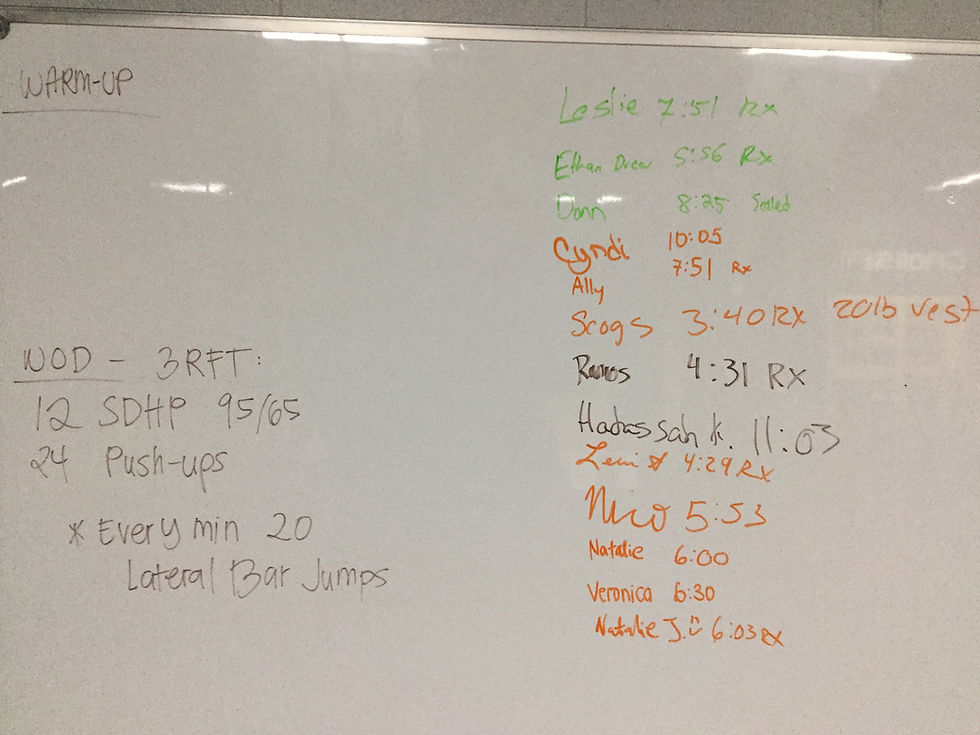 WARM-UP
WOD - 3RFT:
12 SDHP 95/65
24 Push-ups
* Every min 20
Lateral Bar Jumps
Leslie 7:51 Rx
Ethan Drew 5:56 Rx
Donn 8:25 Scaled
Cyndi 10:05
Ally 7:51 Rx
Scogs 3:40 RX 20lb vest
Ramos 4:31 RX
Hadassah K. 11:03
Levi 4:29 RX
Nico 5:53
Natalie 6:00
Veronica 6:30
Natalie J. 6:03 RX